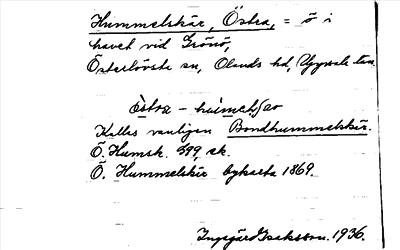 Hummelskär, Östra, = ö i
havet vid Grönö,
Österlövsta sn, Olands hd, Uppsala län
östra - 
Kallas vanligen Bondhummelskär.
Ö. Humsk. 
Ö. Hummelskär bykarta 1869.
Ingegärd Isaksson. 1936.